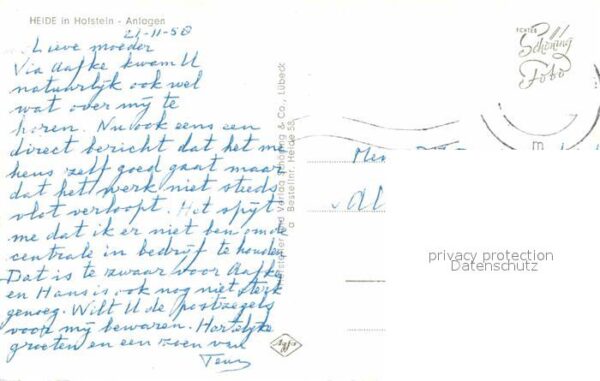 HEIDE in Holstein - Anlagen
21-11-58
Lieve moeder
Via Aafke kwam U
natuurlijk ook wel
wat over mij te
horen. Nu ook eens een
direct bericht dat het me
hens zelf goed gaat maar
dat het werk niet steeds
vlot verloopt. Het spijt
me dat ik er niet ben om de
centrale in bedrijf te houden
Dat is te zwaar voor Aafke
en Hans is ook nog niet sterk
genoeg. Wilt U de postzegels
voor mij bewaren. Hartelijke
groeten en een zoen van
Teun
Schöning & Co., Lübeck
Bestellnr. Heide 58
Agfa
ECHTES
Schöning
Foto
privacy protection
Datenschutz